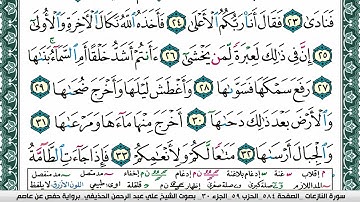 فَنَادَىٰ ٢٣ فَقَالَ أَنَا۠ رَبُّكُمُ ٱلْأَعْلَىٰ ٢٤ فَأَخَذَهُ ٱللَّهُ نَكَالَ ٱلْآخِرَةِ وَٱلْأُولَىٰٓ
٢٥ إِنَّ فِى ذَٰلِكَ لَعِبْرَةً لِّمَن يَخْشَىٰٓ ٢٦ ءَأَنتُمْ أَشَدُّ خَلْقًا أَمِ ٱلسَّمَآءُ ۚ بَنَىٰهَا
٢٧ رَفَعَ سَمْكَهَا فَسَوَّىٰهَا ٢٨ وَأَغْطَشَ لَيْلَهَا وَأَخْرَجَ ضُحَىٰهَا ٢٩
وَٱلْأَرْضَ بَعْدَ ذَٰلِكَ دَحَىٰهَآ ٣٠ أَخْرَجَ مِنْهَا مَآءَهَا وَمَرْعَىٰهَا ٣١
وَٱلْجِبَالَ أَرْسَىٰهَا ٣٢ مَتَٰعًا لَّكُمْ وَلِأَنْعَٰمِكُمْ ٣٣ فَإِذَا جَآءَتِ ٱلطَّآمَّةُ
سورة النازعات الصفحة ٥٨٤ الحزب ٥٩ الجزء ٣٠ بصوت الشيخ علي عبد الرحمن الحذيفي برواية حفص عن عاصم